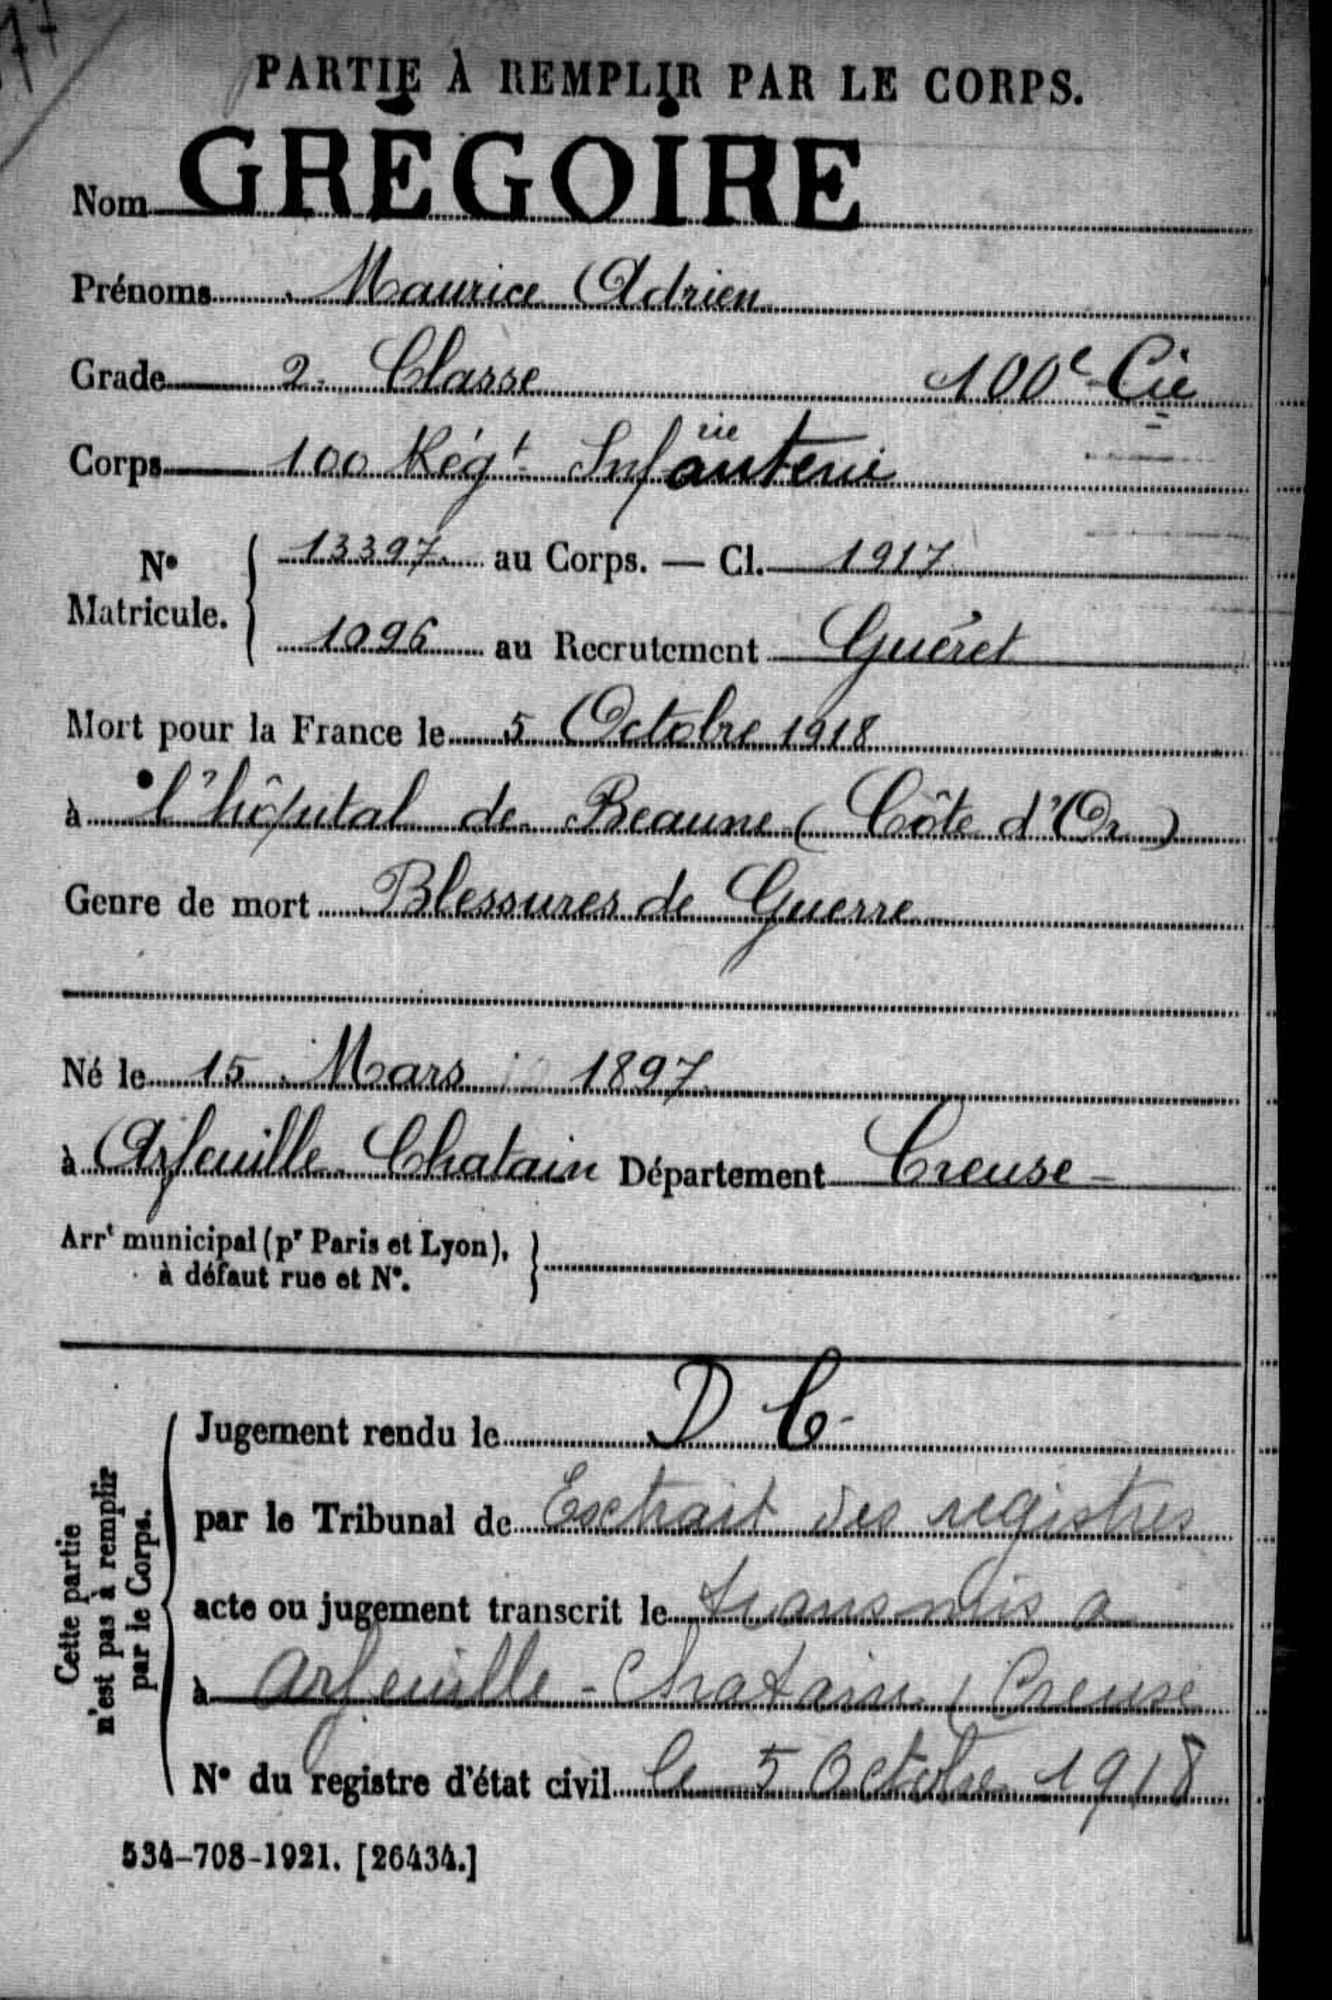 77
PARTIE À REMPLIR PAR LE CORPS.
Nom GRÉGOIRE
Prénoms Maurice Adrien
Grade 2e Classe 100e Cie
Corps 100 Régt Infanterie
rie
N° Matricule. { 13397 au Corps. — Cl. 1917
1096 au Recrutement Guéret
Mort pour la France le 5 Octobre 1918
à l'hôpital de Beaune (Côte d'Or)
Genre de mort Blessures de Guerre
Né le 15 Mars 1897
à Arfeuille Chatain Département Creuse
Arrt municipal (pr Paris et Lyon), à défaut rue et N°. }
Cette partie n'est pas à remplir par le Corps.
Jugement rendu le D C
par le Tribunal de Extrait des registres
acte ou jugement transcrit le transmis a
à Arfeuille-Chatain (Creuse
N° du registre d'état civil le 5 Octobre 1918
534-708-1921. [26434.]